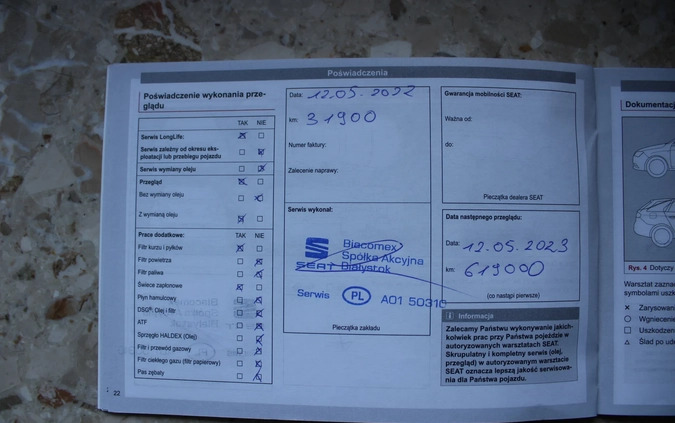 Poświadczenia
Poświadczenie wykonania prze-
glądu
TAK NIE
Serwis LongLife:
Serwis zależny od okresu eks-
ploatacji lub przebiegu pojazdu
Serwis wymiany oleju
Przegląd
Bez wymiany oleju
Z wymianą oleju
Prace dodatkowe: TAK NIE
Filtr kurzu i pyłków
Filtr powietrza
Filtr paliwa
Świece zapłonowe
Płyn hamulcowy
DSG®: Olej i filtr
ATF
Sprzęgło HALDEX (Olej)
Filtr i przewód gazowy
Filtr ciekłego gazu (filtr papierowy)
Pas zębaty
22
Data: 12.05.2022
km: 31900
Numer faktury:
Zalecenie naprawy:
Serwis wykonał:
SEAT
Biacomex
Spółka Akcyjna
Białystok
Serwis PL A01 50310
Pieczątka zakładu
Gwarancja mobilności SEAT:
Ważna od:
do:
Pieczątka dealera SEAT
Data następnego przeglądu:
Data: 12.05.2023
km: 619000
(co nastąpi pierwsze)
i Informacja
Zalecamy Państwu wykonywanie jakich-
kolwiek prac przy Państwa pojeździe w
autoryzowanych warsztatach SEAT.
Skrupulatny i kompletny serwis (olej,
przegląd) w autoryzowanym warsztacie
SEAT oznacza lepszą jakość serwisowa-
nia dla Państwa pojazdu.
Dokumentacj
Rys. 4 Dotyczy
Warsztat zaznar
symbolami uszk
× Zarysowan
Wgnieceni
Uszkodzen
Ślad po ude